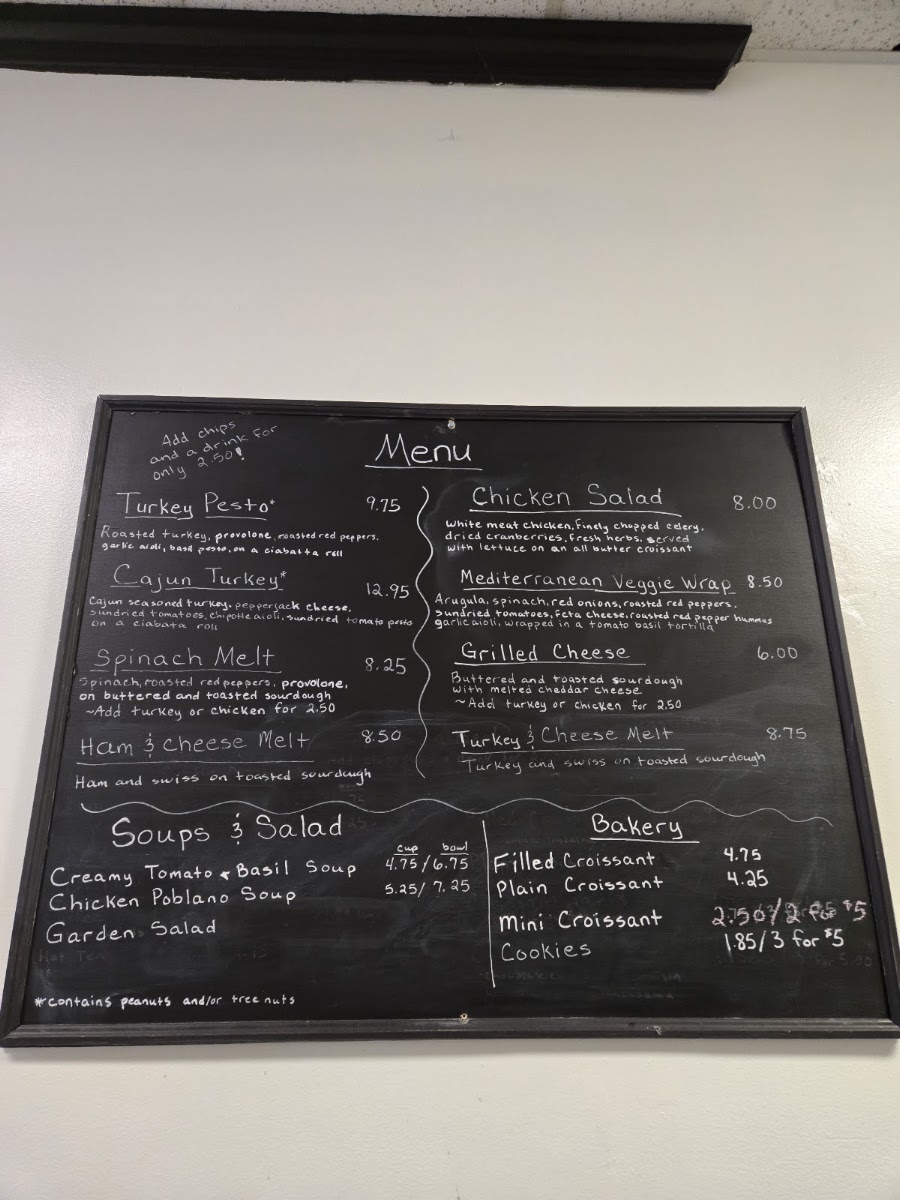 Add chips
and a drink for
only 2.50!
Menu
Turkey Pesto* 9.75
Roasted turkey, provolone, roasted red peppers,
garlic aioli, basil pesto, on a ciabatta roll
Cajun Turkey* 12.95
Cajun seasoned turkey, pepperjack cheese,
sundried tomatoes, chipotle aioli, sundried tomato pesto
on a ciabata roll
Spinach Melt 8.25
Spinach, roasted red peppers, provolone,
on buttered and toasted sourdough
~Add turkey or chicken for 2.50
Ham & Cheese Melt 8.50
Ham and swiss on toasted sourdough
Chicken Salad 8.00
White meat chicken, finely chopped celery,
dried cranberries, fresh herbs, served
with lettuce on an all butter croissant
Mediterranean Veggie Wrap 8.50
Arugula, spinach, red onions, roasted red peppers,
sundried tomatoes, feta cheese, roasted red pepper hummus
garlic aioli, wrapped in a tomato basil tortilla
Grilled Cheese 6.00
Buttered and toasted sourdough
with melted cheddar cheese
~Add turkey or chicken for 2.50
Turkey & Cheese Melt 8.75
Turkey and swiss on toasted sourdough
Soups & Salad
cup bowl
Creamy Tomato & Basil Soup 4.75/6.75
Chicken Poblano Soup 5.25/7.25
Garden Salad
*contains peanuts and/or tree nuts
Bakery
Filled Croissant 4.75
Plain Croissant 4.25
Mini Croissant 2.50/2 for $5
Cookies 1.85/3 for $5